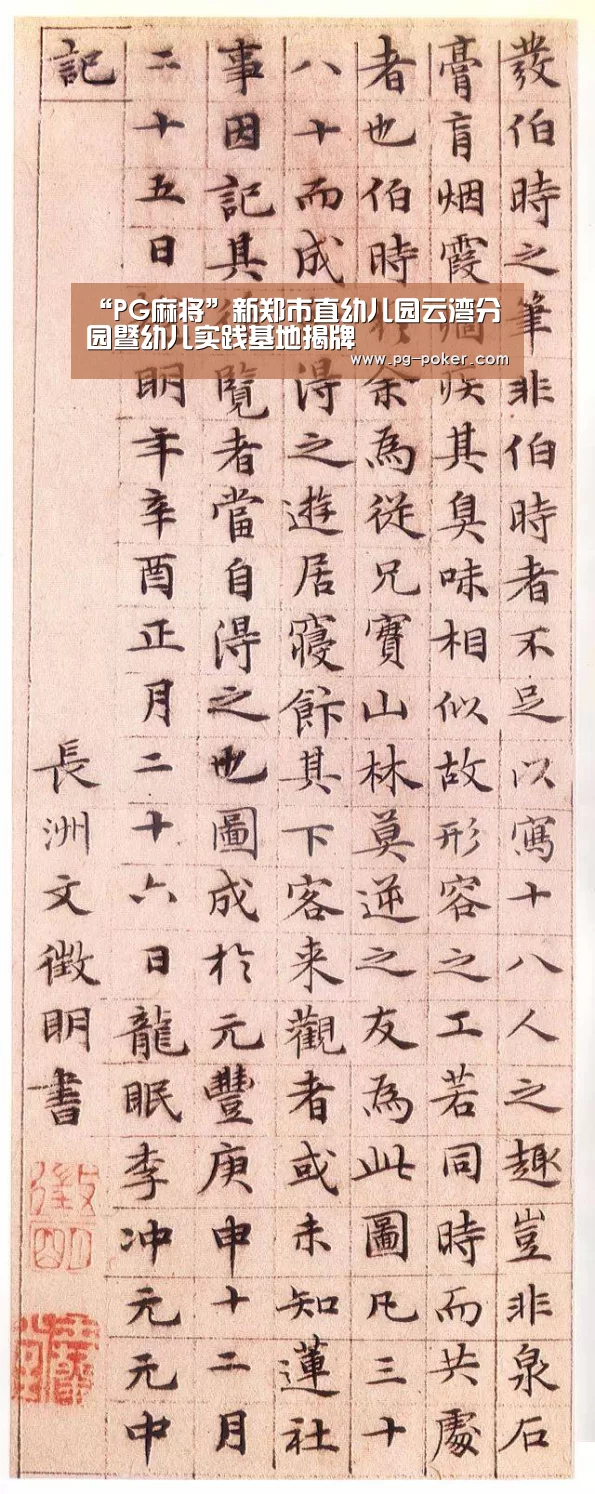 發伯時之筆非伯時者不足以寫十八人之趣豈非泉石
膏肓烟霞痼疾其臭味相似故形容之工若同時而共處
者也伯時余為從兄寶山林莫逆之友為此圖凡三十
八十而成得之遊居寢飰其下客来觀者或未知蓮社
事因記其覽者當自得之也圖成於元豐庚申十二月
二十五日明年辛酉正月二十六日龍眠李冲元元中
記
長洲文徵明書
徵明
“PG麻将”新郑市直幼儿园云湾分
园暨幼儿实践基地揭牌
www.pg-poker.com